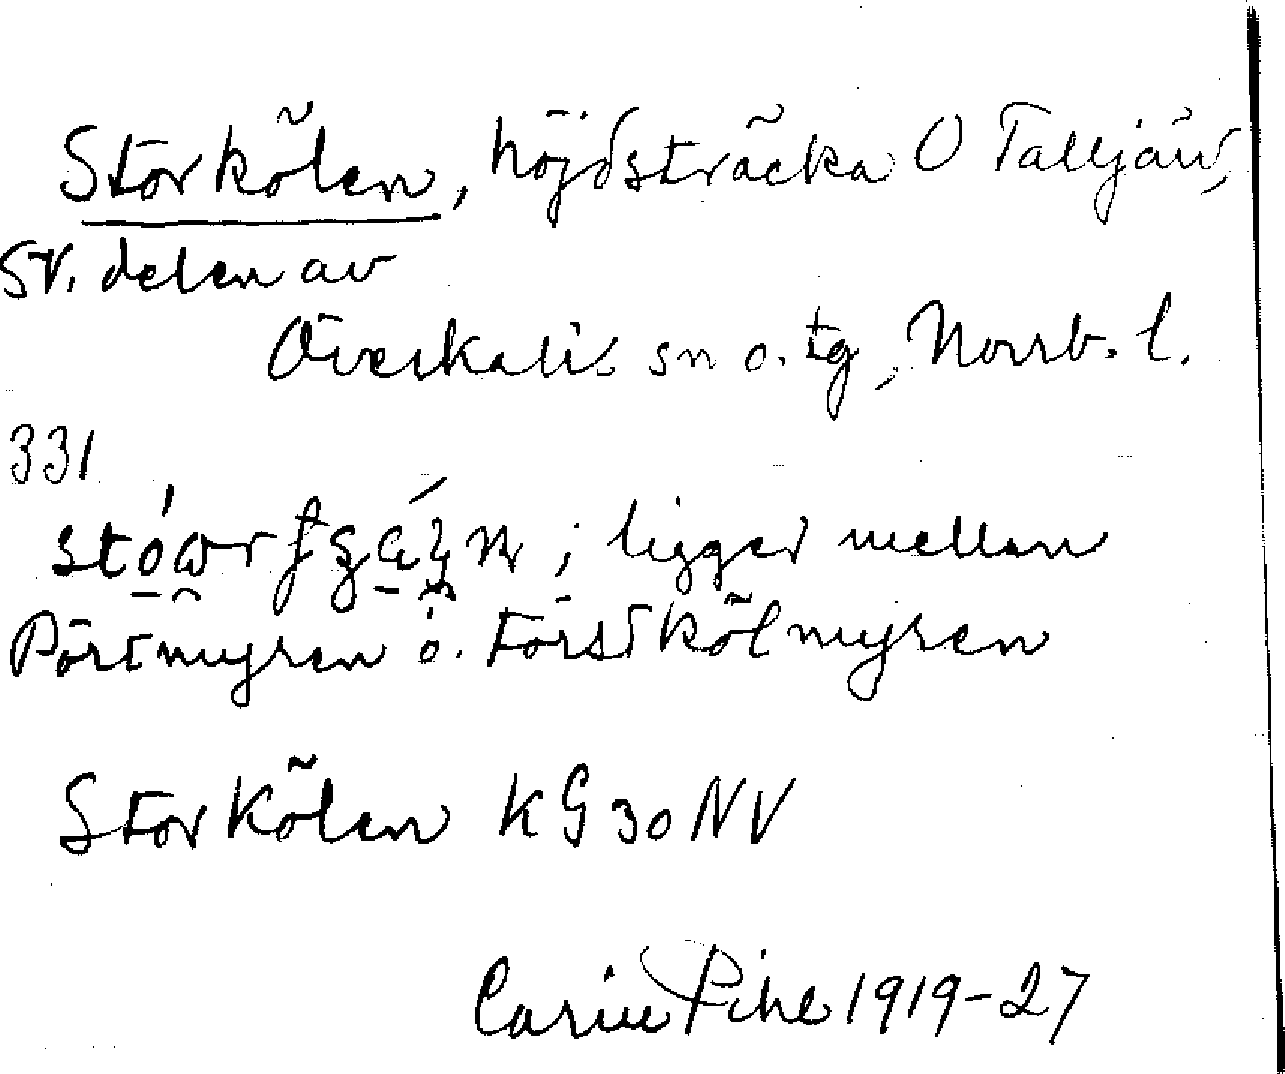 Storkölen, höjdsträcka O Talljärv,
sv. delen av
Överkalix sn o. tg, Norrb. l.
331
; ligger mellan
Pörtmyren o. Förstkölmyren
Storkölen KG 30 NV
Carin Pihl 1919-27